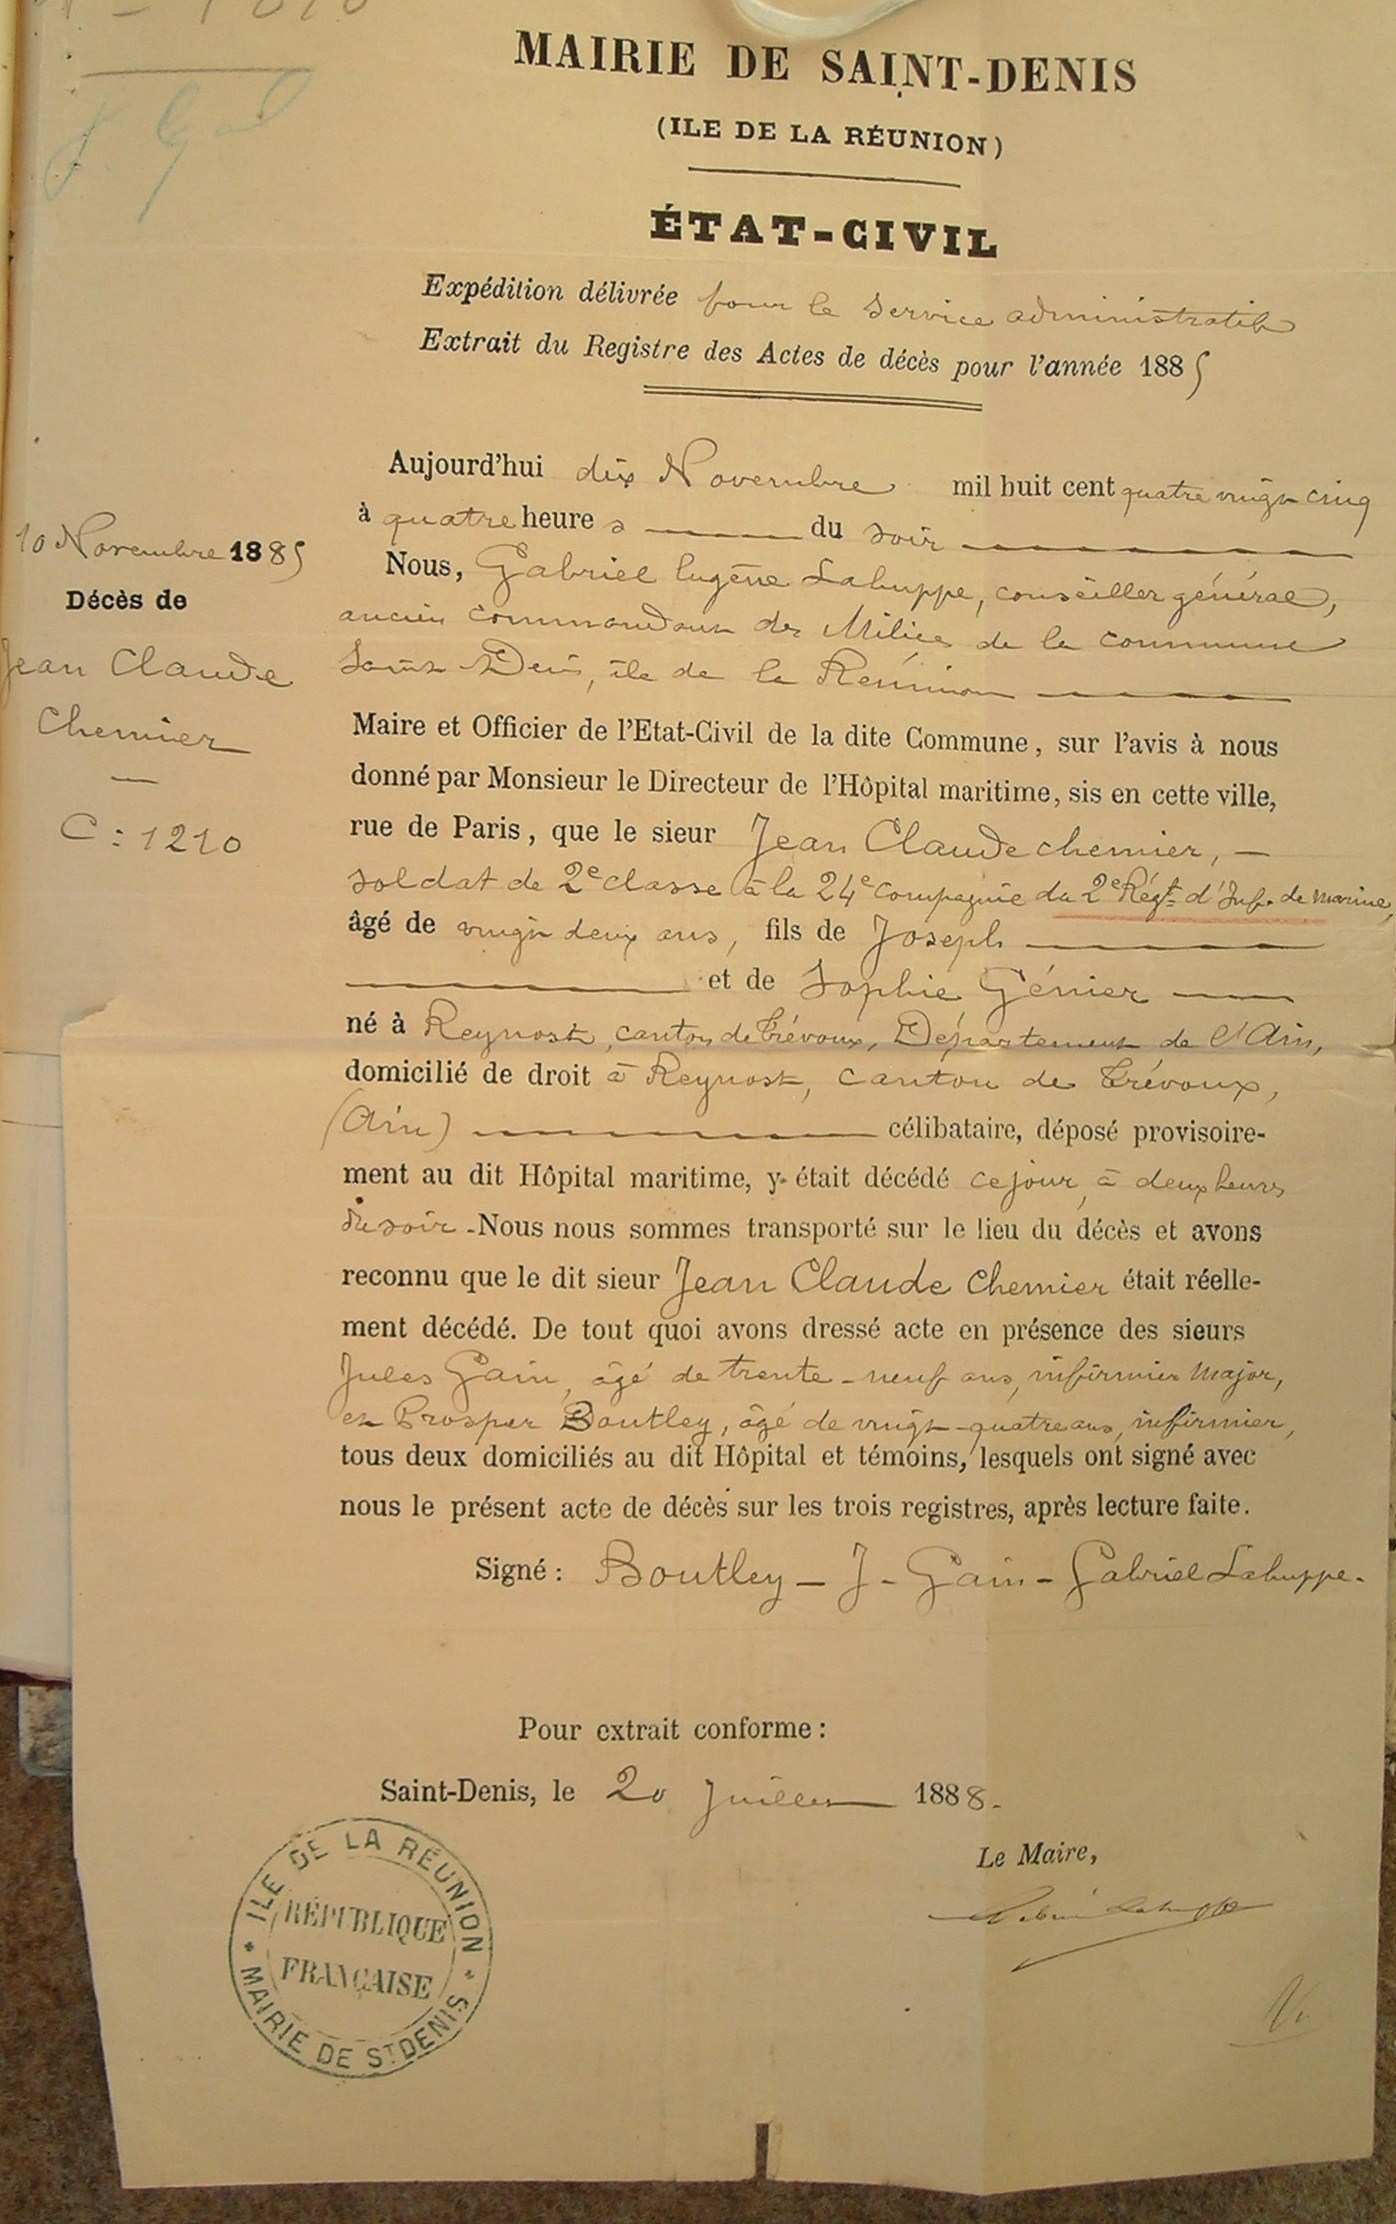 MAIRIE DE SAINT-DENIS
(ILE DE LA RÉUNION)
ÉTAT-CIVIL
Expédition délivrée pour le service administratif
Extrait du Registre des Actes de décès pour l'année 1885
Aujourd'hui dix Novembre mil huit cent quatre vingt cinq
à quatre heures du soir
10 Novembre 1885
Décès de
Jean Claude
Chemier
C : 1210
Nous, Gabriel Eugène Lahuppe, conseiller général,
ancien commandant des Milices de la commune
Saint Denis, île de la Réunion
Maire et Officier de l'Etat-Civil de la dite Commune, sur l'avis à nous
donné par Monsieur le Directeur de l'Hôpital maritime, sis en cette ville,
rue de Paris, que le sieur Jean Claude Chemier, —
soldat de 2e classe à la 24e compagnie du 2e Régt d'Inf. de marine,
âgé de vingt deux ans, fils de Joseph
et de Sophie Génier
né à Reynost, canton de Trévoux, Département de l'Ain,
domicilié de droit à Reynost, canton de Trévoux,
(Ain) célibataire, déposé provisoire-
ment au dit Hôpital maritime, y était décédé ce jour, à deux heures
du soir - Nous nous sommes transporté sur le lieu du décès et avons
reconnu que le dit sieur Jean Claude Chemier était réelle-
ment décédé. De tout quoi avons dressé acte en présence des sieurs
Jules Gain, âgé de trente-neuf ans, infirmier major,
et Prosper Boutley, âgé de vingt-quatre ans, infirmier,
tous deux domiciliés au dit Hôpital et témoins, lesquels ont signé avec
nous le présent acte de décès sur les trois registres, après lecture faite.
Signé : Boutley - J - Gain - Gabriel Lahuppe.
Pour extrait conforme :
Saint-Denis, le 20 Juillet 1888.
Le Maire,
Gabriel Lahuppe
ILE DE LA RÉUNION
RÉPUBLIQUE
FRANÇAISE
MAIRIE DE ST DENIS